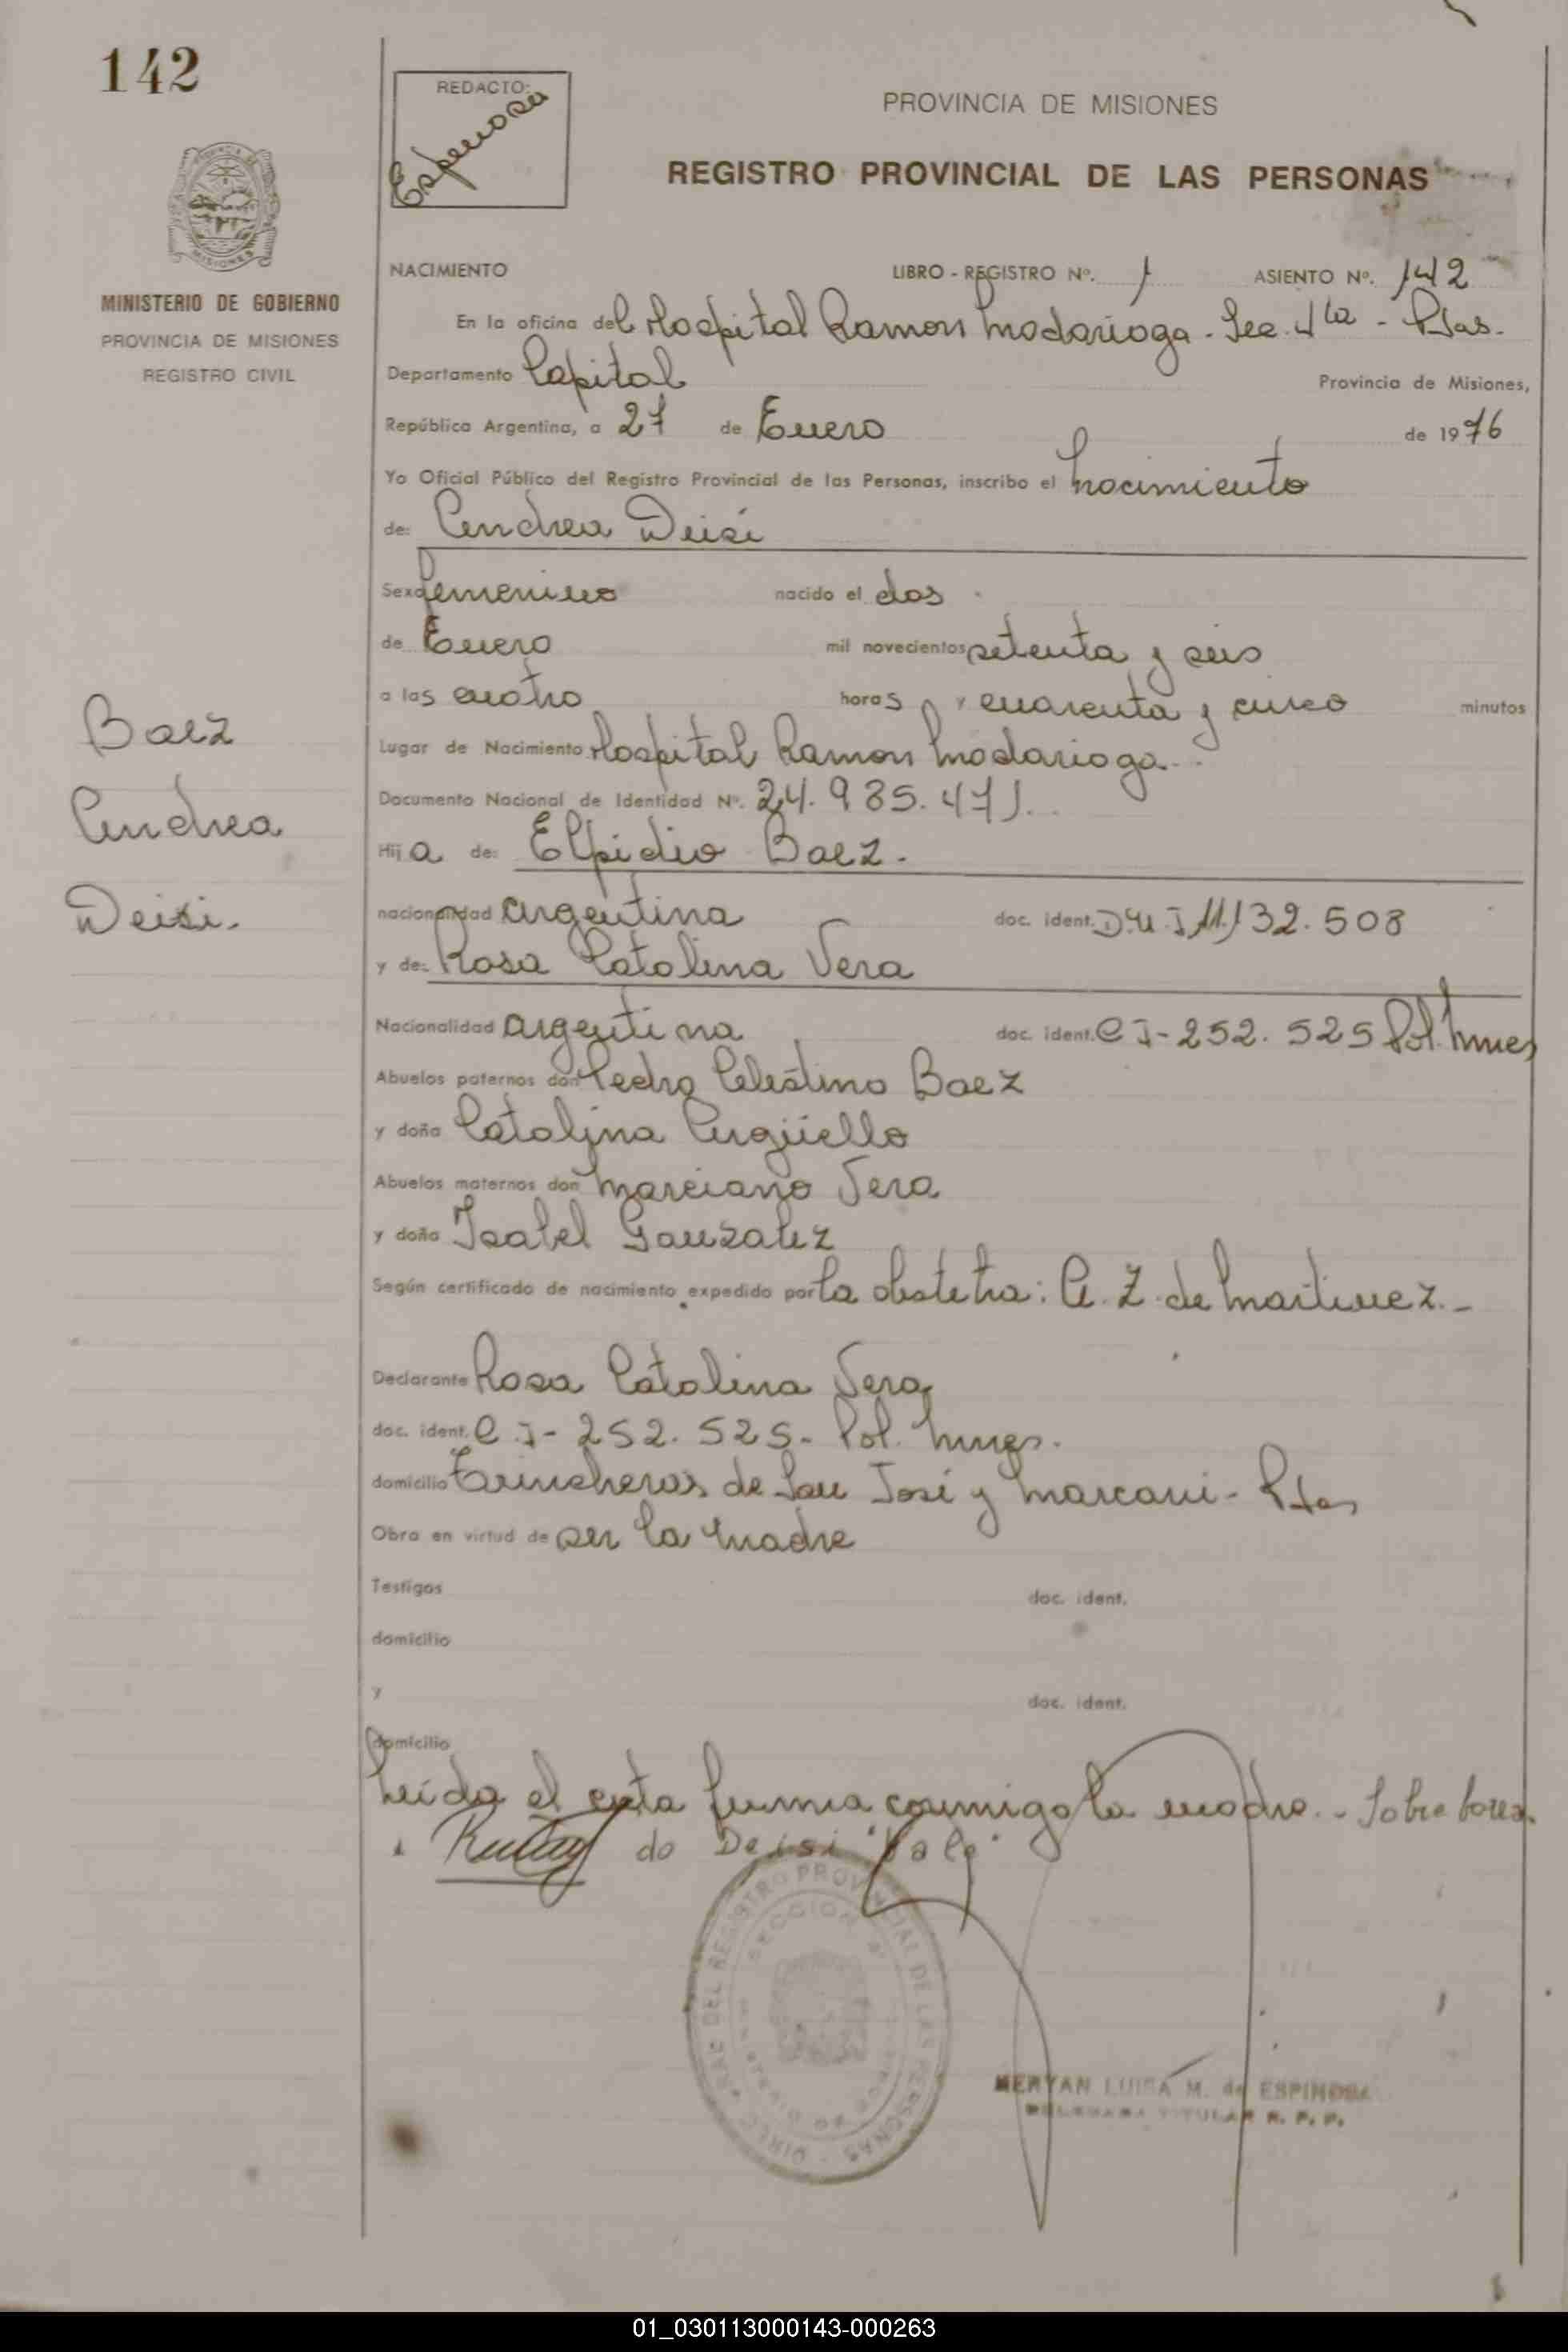 142
REDACTO:
Espinosa
PROVINCIA DE MISIONES
REGISTRO PROVINCIAL DE LAS PERSONAS
MINISTERIO DE GOBIERNO
PROVINCIA DE MISIONES
REGISTRO CIVIL
NACIMIENTO LIBRO - REGISTRO Nº. 1 ASIENTO Nº. 142
En la oficina del Hospital Ramon Madariaga - Sec. 4ta - Pdas.
Departamento Capital Provincia de Misiones,
República Argentina, a 27 de Enero de 1976
Yo Oficial Público del Registro Provincial de las Personas, inscribo el nacimiento
de: Andrea Deisi
Sexo femenino nacido el dos
de Enero mil novecientos setenta y seis
a las cuatro horas y cuarenta y cinco minutos
Lugar de Nacimiento Hospital Ramon Madariaga
Documento Nacional de Identidad Nº. 24.985.471
Hija de: Elpidio Baez.
Baez
Andrea
Deisi.
nacionalidad argentina doc. ident. D.N.I 11.132.508
y de: Rosa Catalina Vera
Nacionalidad argentina doc. ident. C I - 252.525 Pol. Mnes
Abuelos paternos don Pedro Celestino Baez
y doña Catalina Argüello
Abuelos maternos don Marciano Vera
y doña Isabel Gonzalez
Según certificado de nacimiento expedido por la obstetra: A. Z. de Martinez.-
Declarante Rosa Catalina Vera
doc. ident. C I - 252.525- Pol. Mnes.
domicilio Trincheras de San José y Marconi - Pdas
Obra en virtud de ser la madre
Testigos doc. ident.
domicilio
y doc. ident.
domicilio
Leida el acta firma conmigo la madre.- Sobre borra
do Deisi "Vale"
DIREC. GRAL. DEL REGISTRO PROVINCIAL DE LAS PERSONAS
SECCION 4ª
MERYAN LUISA M. de ESPINOSA
DELEGADA TITULAR R. P. P.
01_030113000143-000263